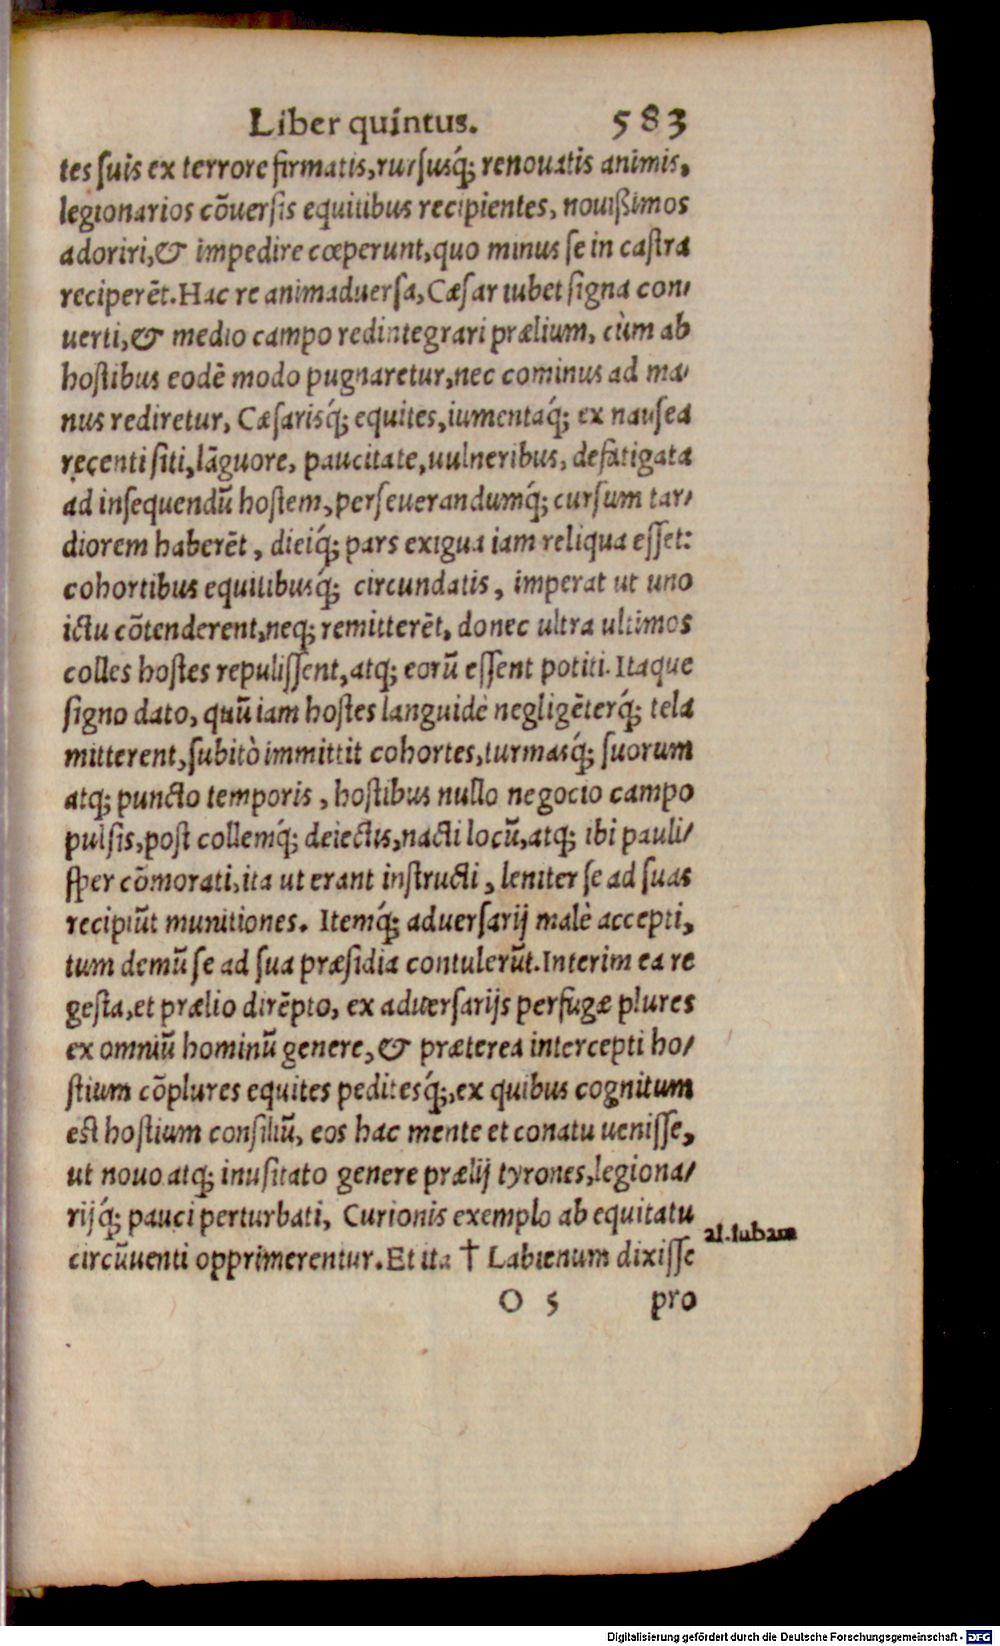 Liber quintus. 583
tes ſuis ex terrore firmatis, rurſusq́; renouatis animis,
legionarios cõuerſis equitibus recipientes, nouißimos
adoriri, & impedire cœperunt, quo minus ſe in caſtra
reciperẽt. Hac re animaduerſa, Cæſar iubet ſigna con-
uerti, & medio campo redintegrari prælium, cùm ab
hoſtibus eodẽ modo pugnaretur, nec cominus ad ma-
nus rediretur, Cæſarisq́; equites, iumentaq́; ex nauſea
recenti ſiti, lãguore, paucitate, uulneribus, defatigata
ad inſequendũ hoſtem, perſeuerandumq́; curſum tar-
diorem haberẽt, dieiq́; pars exigua iam reliqua eſſet:
cohortibus equitibusq́; circundatis, imperat ut uno
ictu cõtenderent, neq; remitterẽt, donec ultra ultimos
colles hoſtes repuliſſent, atq; eorũ eſſent potiti. Itaque
ſigno dato, quũ iam hoſtes languidè negligẽterq́; tela
mitterent, ſubitò immittit cohortes, turmasq́; ſuorum
atq; puncto temporis, hoſtibus nullo negocio campo
pulſis, poſt collemq́; deiectis, nacti locũ, atq; ibi pauli-
ſper cõmorati, ita ut erant inſtructi, leniter ſe ad ſuas
recipiũt munitiones. Itemq́; aduerſarij malè accepti,
tum demũ ſe ad ſua præſidia contulerũt. Interim ea re
geſta, et prælio dirẽpto, ex aduerſarijs perfugæ plures
ex omniũ hominũ genere, & præterea intercepti ho-
ſtium cõplures equites peditesq́;, ex quibus cognitum
eſt hoſtium conſiliũ, eos hac mente et conatu ueniſſe,
ut nouo atq; inuſitato genere prælij tyrones, legiona-
rijq́; pauci perturbati, Curionis exemplo ab equitatu
circũuenti opprimerentur. Et ita † Labienum dixiſſe
al. Iubam
O 5 pro
Digitalisierung gefördert durch die Deutsche Forschungsgemeinschaft - DFG